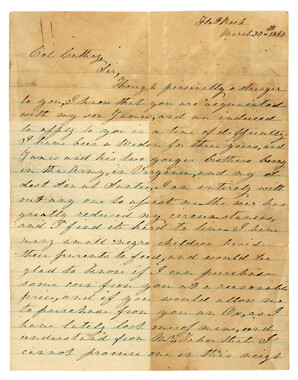 Flat Rock
March 30th 186
Col. Cathey,
Sir,
Though personally a stranger
to you, I know that you are acquainted
with my son James, and am induced
to apply to you in a time of difficulty.
I have been a Widow for three years, and
James and his two younger brothers being
in the Army, in Virginia, and my
I am entirely with
out any one to assist me, the war has
greatly reduced my circumstances,
and I find it hard to live. I have
many small negro children besides
their parents to feed, and would be
glad to know if I can purchase
some corn from you at a reasonable
price, and if you would allow me
to purchase from you an Ox, as I
have lately lost one of mine, and
understand from Mr Tabor that I
cannot procure one in this neigh